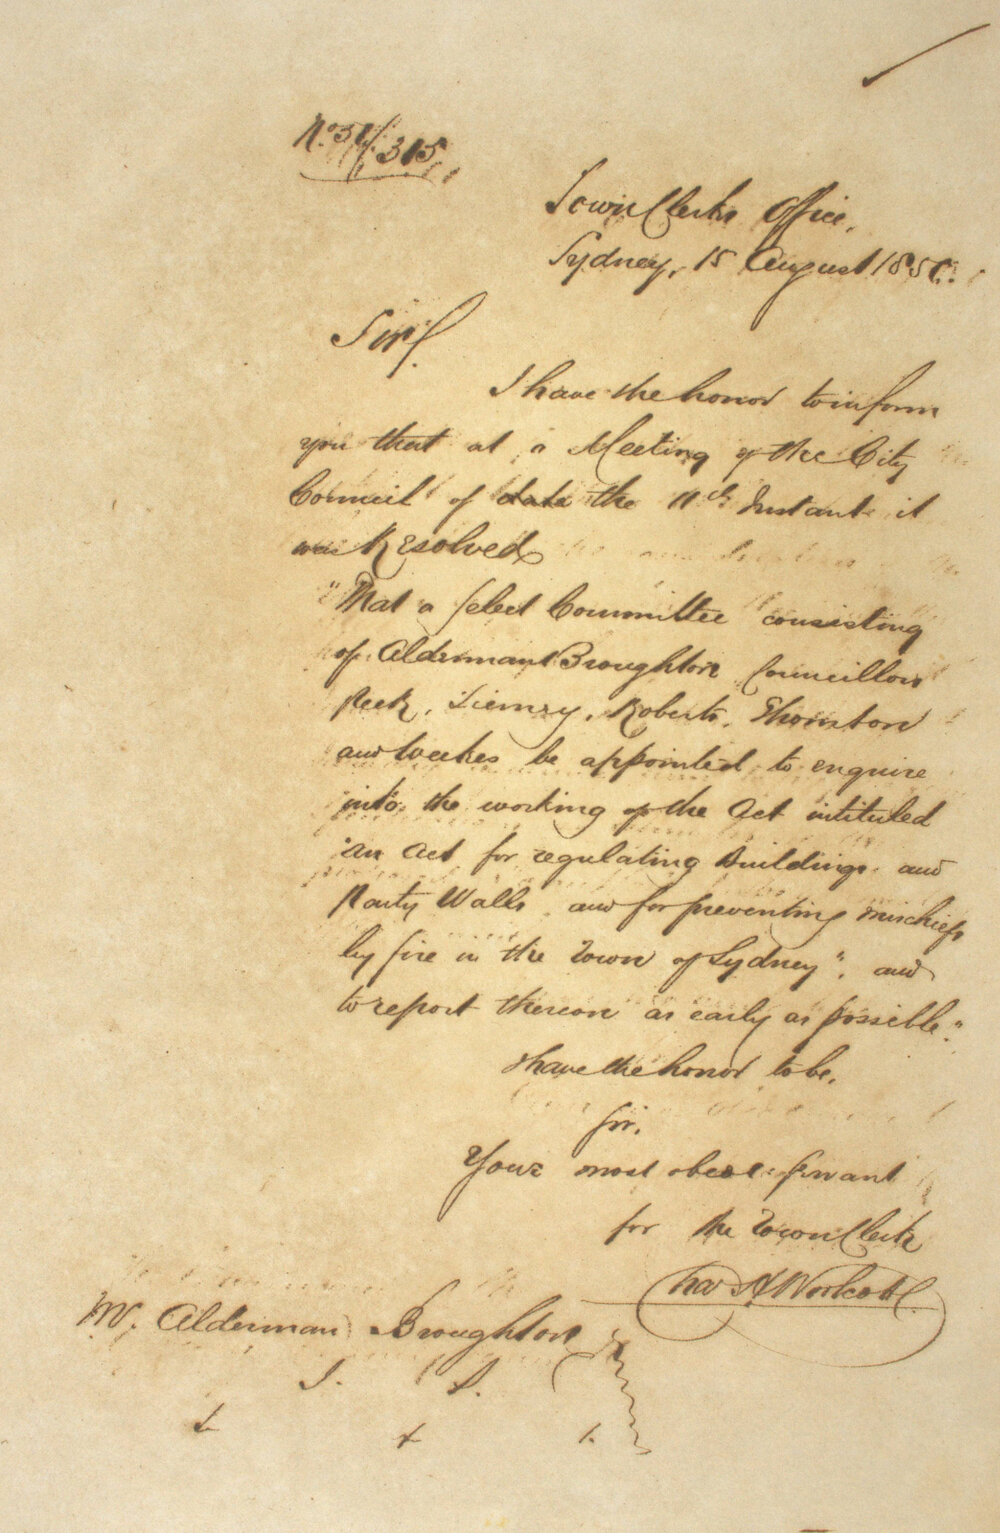 Town Clerks Office,
Sydney, 15 August 185
Sir,
I have the honor to inform
you that at a Meeting of the City
Council of date the 11th Instant it
was Resolved
"That a Select Committee consisting
of Alderman Broughton Councillors
Peek, Tierney, Roberts, Thurston
and Weekes be appointed to enquire
into the working of the Act intituled
"An Act for regulating Buildings and
Party Walls and for preventing mischiefs
by fire in the Town of Sydney", and
to report thereon as early as possible."
I have the honor to be,
Sir,
Your most obedt Servant
for the Town Clerk
Chas H Woolcott
Mr. Alderman Broughton